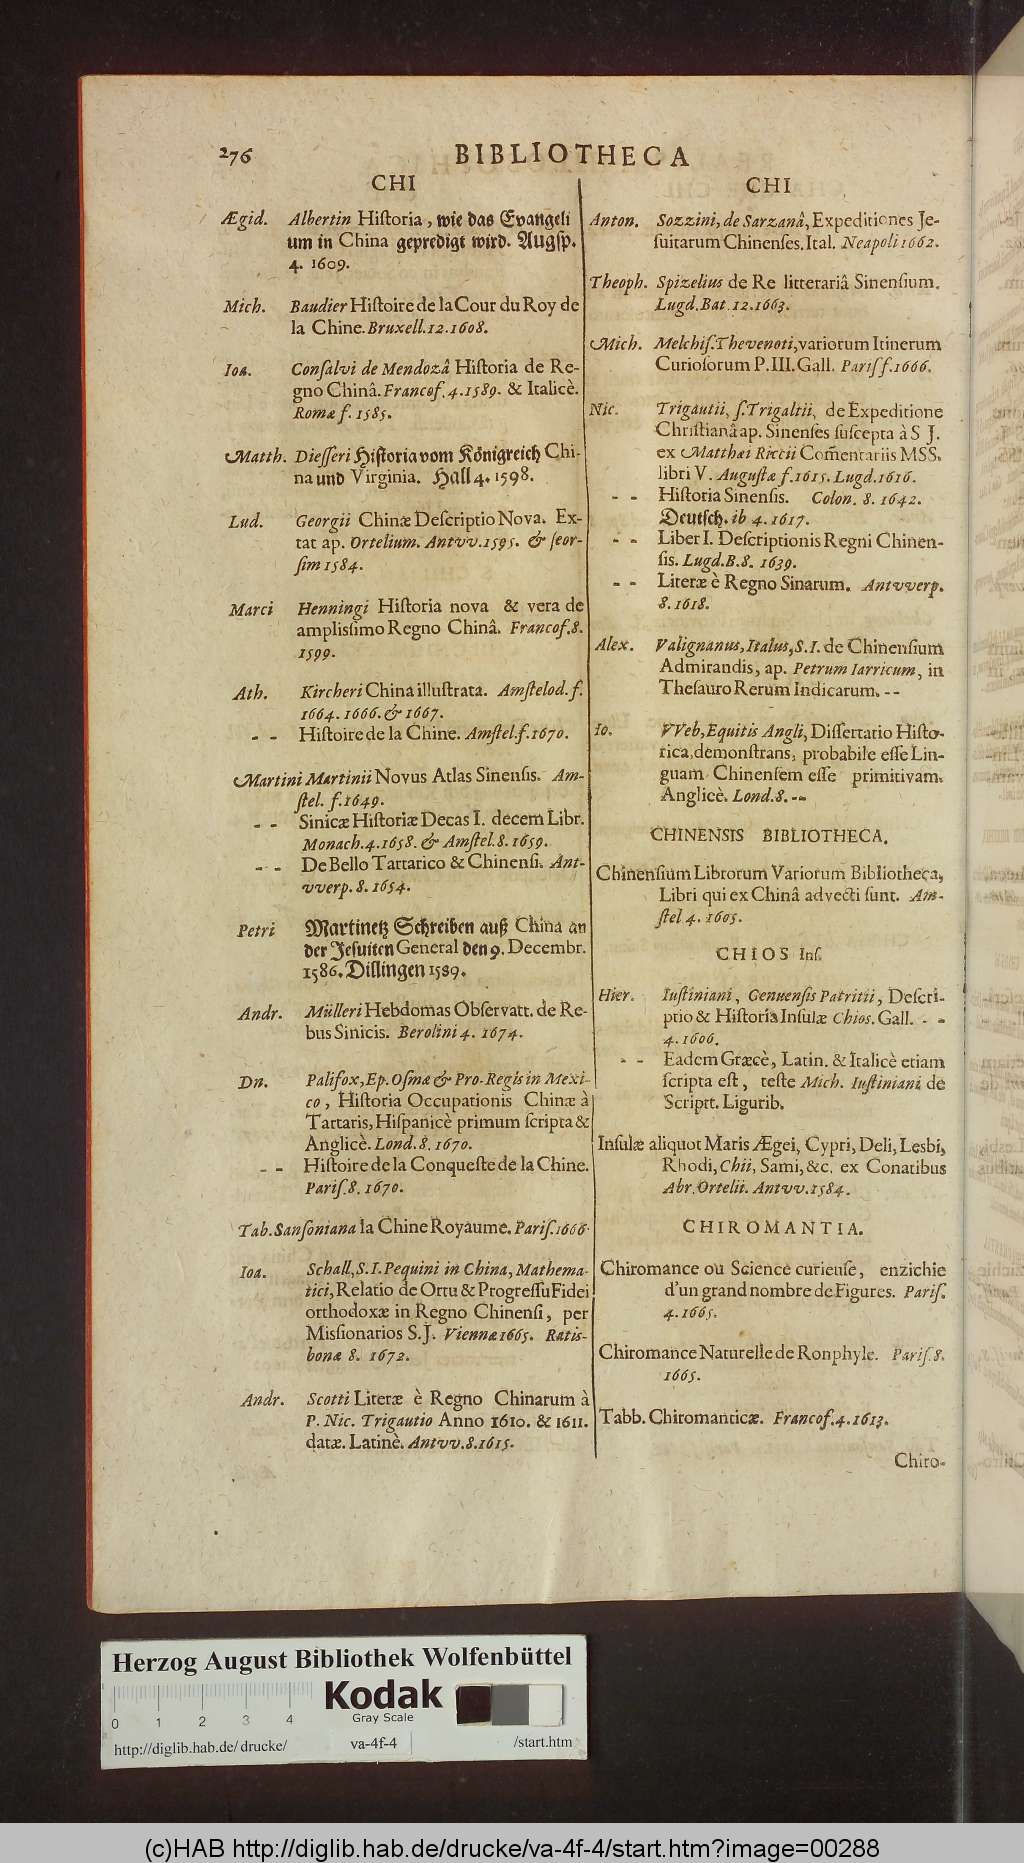 276
BIBLIOTHECA
CHI
Ægid. Albertin Hiſtoria, wie das Evangeli
um in China gepredigt wird. Augſp.
4. 1609.
Mich. Baudier Hiſtoire de la Cour du Roy de
la Chine. Bruxell. 12. 1608.
Ioa. Conſalvi de Mendozâ Hiſtoria de Re-
gno Chinâ. Francof. 4. 1589. & Italicè.
Romæ f. 1585.
Matth. Dieſſeri Hiſtoria vom Königreich Chi-
na und Virginia. Hall 4. 1598.
Lud. Georgii Chinæ Deſcriptio Nova. Ex-
tat ap. Ortelium. Antvv. 1595. & ſeor-
ſim 1584.
Marci Henningi Hiſtoria nova & vera de
ampliſſimo Regno Chinâ. Francof. 8.
1599.
Ath. Kircheri China illuſtrata. Amſtelod. f.
1664. 1666. & 1667.
- - Hiſtoire de la Chine. Amſtel. f. 1670.
Martini Martinii Novus Atlas Sinenſis. Am-
ſtel. f. 1649.
- - Sinicæ Hiſtoriæ Decas I. decem Libr.
Monach. 4. 1658. & Amſtel. 8. 1659.
- - De Bello Tartarico & Chinenſi. Ant-
vverp. 8. 1654.
Petri Martinetz Schreiben auß China an
der Jeſuiten General den 9. Decembr.
1586. Dillingen 1589.
Andr. Mülleri Hebdomas Obſervatt. de Re-
bus Sinicis. Berolini 4. 1674.
Dn. Palifox, Ep. Oſmæ & Pro-Regis in Mexi-
co, Hiſtoria Occupationis Chinæ à
Tartaris, Hiſpanicè primum ſcripta &
Anglicè. Lond. 8. 1670.
- - Hiſtoire de la Conqueſte de la Chine.
Pariſ. 8. 1670.
Tab. Sanſoniana la Chine Royaume. Pariſ. 1666.
Ioa. Schall, S. I. Pequini in China, Mathema-
tici, Relatio de Ortu & Progreſſu Fidei
orthodoxæ in Regno Chinenſi, per
Miſſionarios S. J. Viennæ 1665. Ratis-
bonæ 8. 1672.
Andr. Scotti Literæ è Regno Chinarum à
P. Nic. Trigautio Anno 1610. & 1611.
datæ. Latinè. Antvv. 8. 1615.
CHI
Anton. Sozzini, de Sarzanâ, Expeditiones Je-
ſuitarum Chinenſes. Ital. Neapoli 1662.
Theoph. Spizelius de Re litterariâ Sinenſium.
Lugd. Bat. 12. 1663.
Mich. Melchiſ. Thevenoti, variorum Itinerum
Curioſorum P. III. Gall. Pariſ f. 1666.
Nic. Trigautii, ſ. Trigaltii, de Expeditione
Chriſtianâ ap. Sinenſes ſuſcepta à S J.
ex Matthæi Riccii Com̃entariis MSS.
libri V. Auguſtæ f. 1615. Lugd. 1616.
- - Hiſtoria Sinenſis. Colon. 8. 1642.
Deutſch. ib 4. 1617.
- - Liber I. Deſcriptionis Regni Chinen-
ſis. Lugd. B. 8. 1639.
- - Literæ è Regno Sinarum. Antvverp.
8. 1618.
Alex. Valignanus, Italus, S. I. de Chinenſium
Admirandis, ap. Petrum Iarricum, in
Theſauro Rerum Indicarum. - -
Io. VVeb, Equitis Angli, Diſſertatio Hiſto-
rica, demonſtrans, probabile eſſe Lin-
guam Chinenſem eſſe primitivam.
Anglicè. Lond. 8. - -
CHINENSIS BIBLIOTHECA.
Chinenſium Librorum Variorum Bibliotheca,
Libri qui ex Chinâ advecti ſunt. Am-
ſtel 4. 1605.
CHIOS Inſ.
Hier. Iuſtiniani, Genuenſis Patritii, Deſcri-
ptio & Hiſtoria Inſulæ Chios. Gall. - -
4. 1606.
- - Eadem Græcè, Latin. & Italicè etiam
ſcripta eſt, teſte Mich. Iuſtiniani de
Scriptt. Ligurib.
Inſulæ aliquot Maris Ægei, Cypri, Deli, Lesbi,
Rhodi, Chii, Sami, &c. ex Conatibus
Abr. Ortelii. Antvv. 1584.
CHIROMANTIA.
Chiromance ou Science curieuſe, enzichie
d'un grand nombre de Figures. Pariſ.
4. 1665.
Chiromance Naturelle de Ronphyle. Pariſ. 8.
1665.
Tabb. Chiromanticæ. Francof. 4. 1613.
Chiro-
Herzog August Bibliothek Wolfenbüttel
Kodak
Gray Scale
0 1 2 3 4
http://diglib.hab.de/drucke/ va-4f-4 /start.htm
(c)HAB http://diglib.hab.de/drucke/va-4f-4/start.htm?image=00288